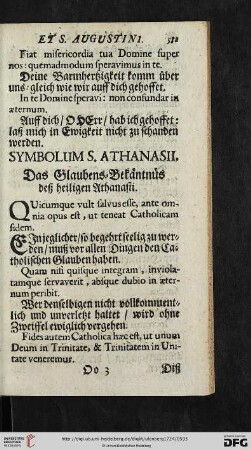 ET S. AUGUSTINI.
Fiat misericordia tua Domine super
nos: quemadmodum speravimus in te.
Deine Barmhertzigkeit komm über
uns: gleich wie wir auff dich gehoffet.
In te Domine speravi: non confundar in
æternum.
Auff dich/ O HErr/ hab ich gehoffet:
laß mich in Ewigkeit nicht zu schanden
werden.
SYMBOLUM S. ATHANASII,
Das Glaubens-Bekäntnüs
deß heiligen Athanasii.
QUicumque vult salvus esse, ante om-
nia opus est, ut teneat Catholicam
fidem.
EIn jeglicher/ so begehrt seelig zu wer-
den/ muß vor allen Dingen den Ca-
tholischen Glauben haben.
Quam nisi quisque integram, inviola-
tamque servaverit, absque dubio in æter-
num peribit.
Wer denselbigen nicht vollkomment-
lich und unverletzt haltet/ wird ohne
Zweiffel ewiglich vergehen.
Fides autem Catholica hæc est, ut unum
Deum in Trinitate, & Trinitatem in Uni-
tate veneremur.
Oo 3 Diß
UNIVERSITÄTS-
BIBLIOTHEK
HEIDELBERG
Gefördert durch
DFG